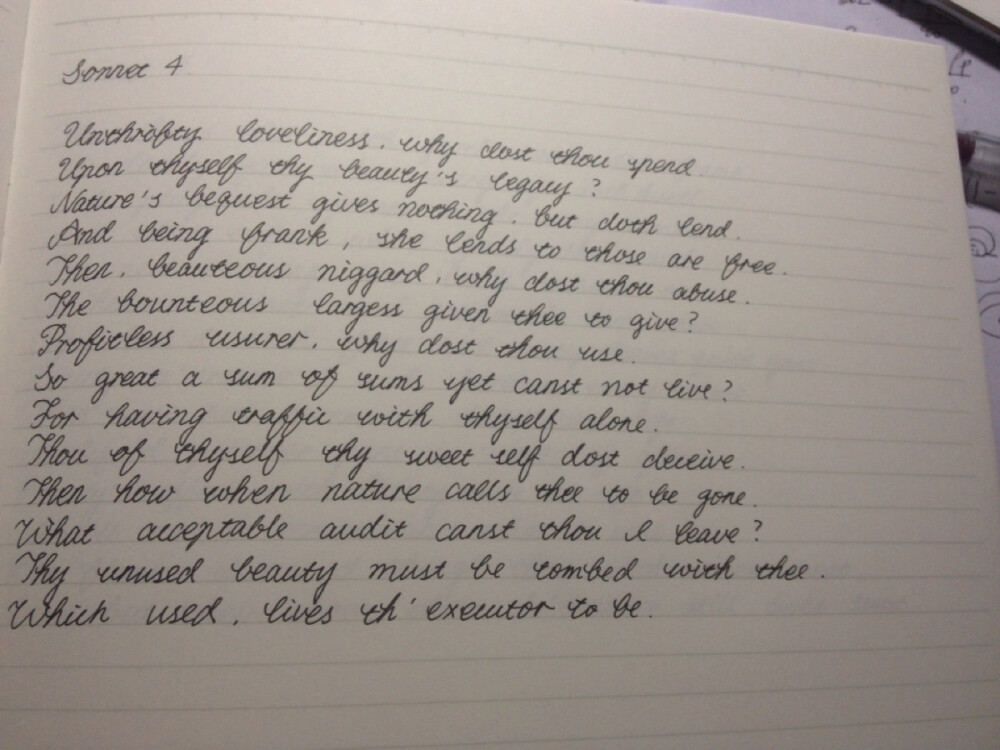 Sonnet 4
Unthrifty loveliness. why dost thou spend.
Upon thyself thy beauty's legacy?
Nature's bequest gives nothing. but doth lend.
And being frank, she lends to those are free.
Then, beauteous niggard, why dost thou abuse.
The bounteous largess given thee to give?
Profitless usurer, why dost thou use.
So great a sum of sums yet canst not live?
For having traffic with thyself alone.
Thou of thyself thy sweet self dost deceive.
Then how when nature calls thee to be gone.
What acceptable audit canst thou leave?
Thy unused beauty must be tombed with thee.
Which used, lives th' executor to be.